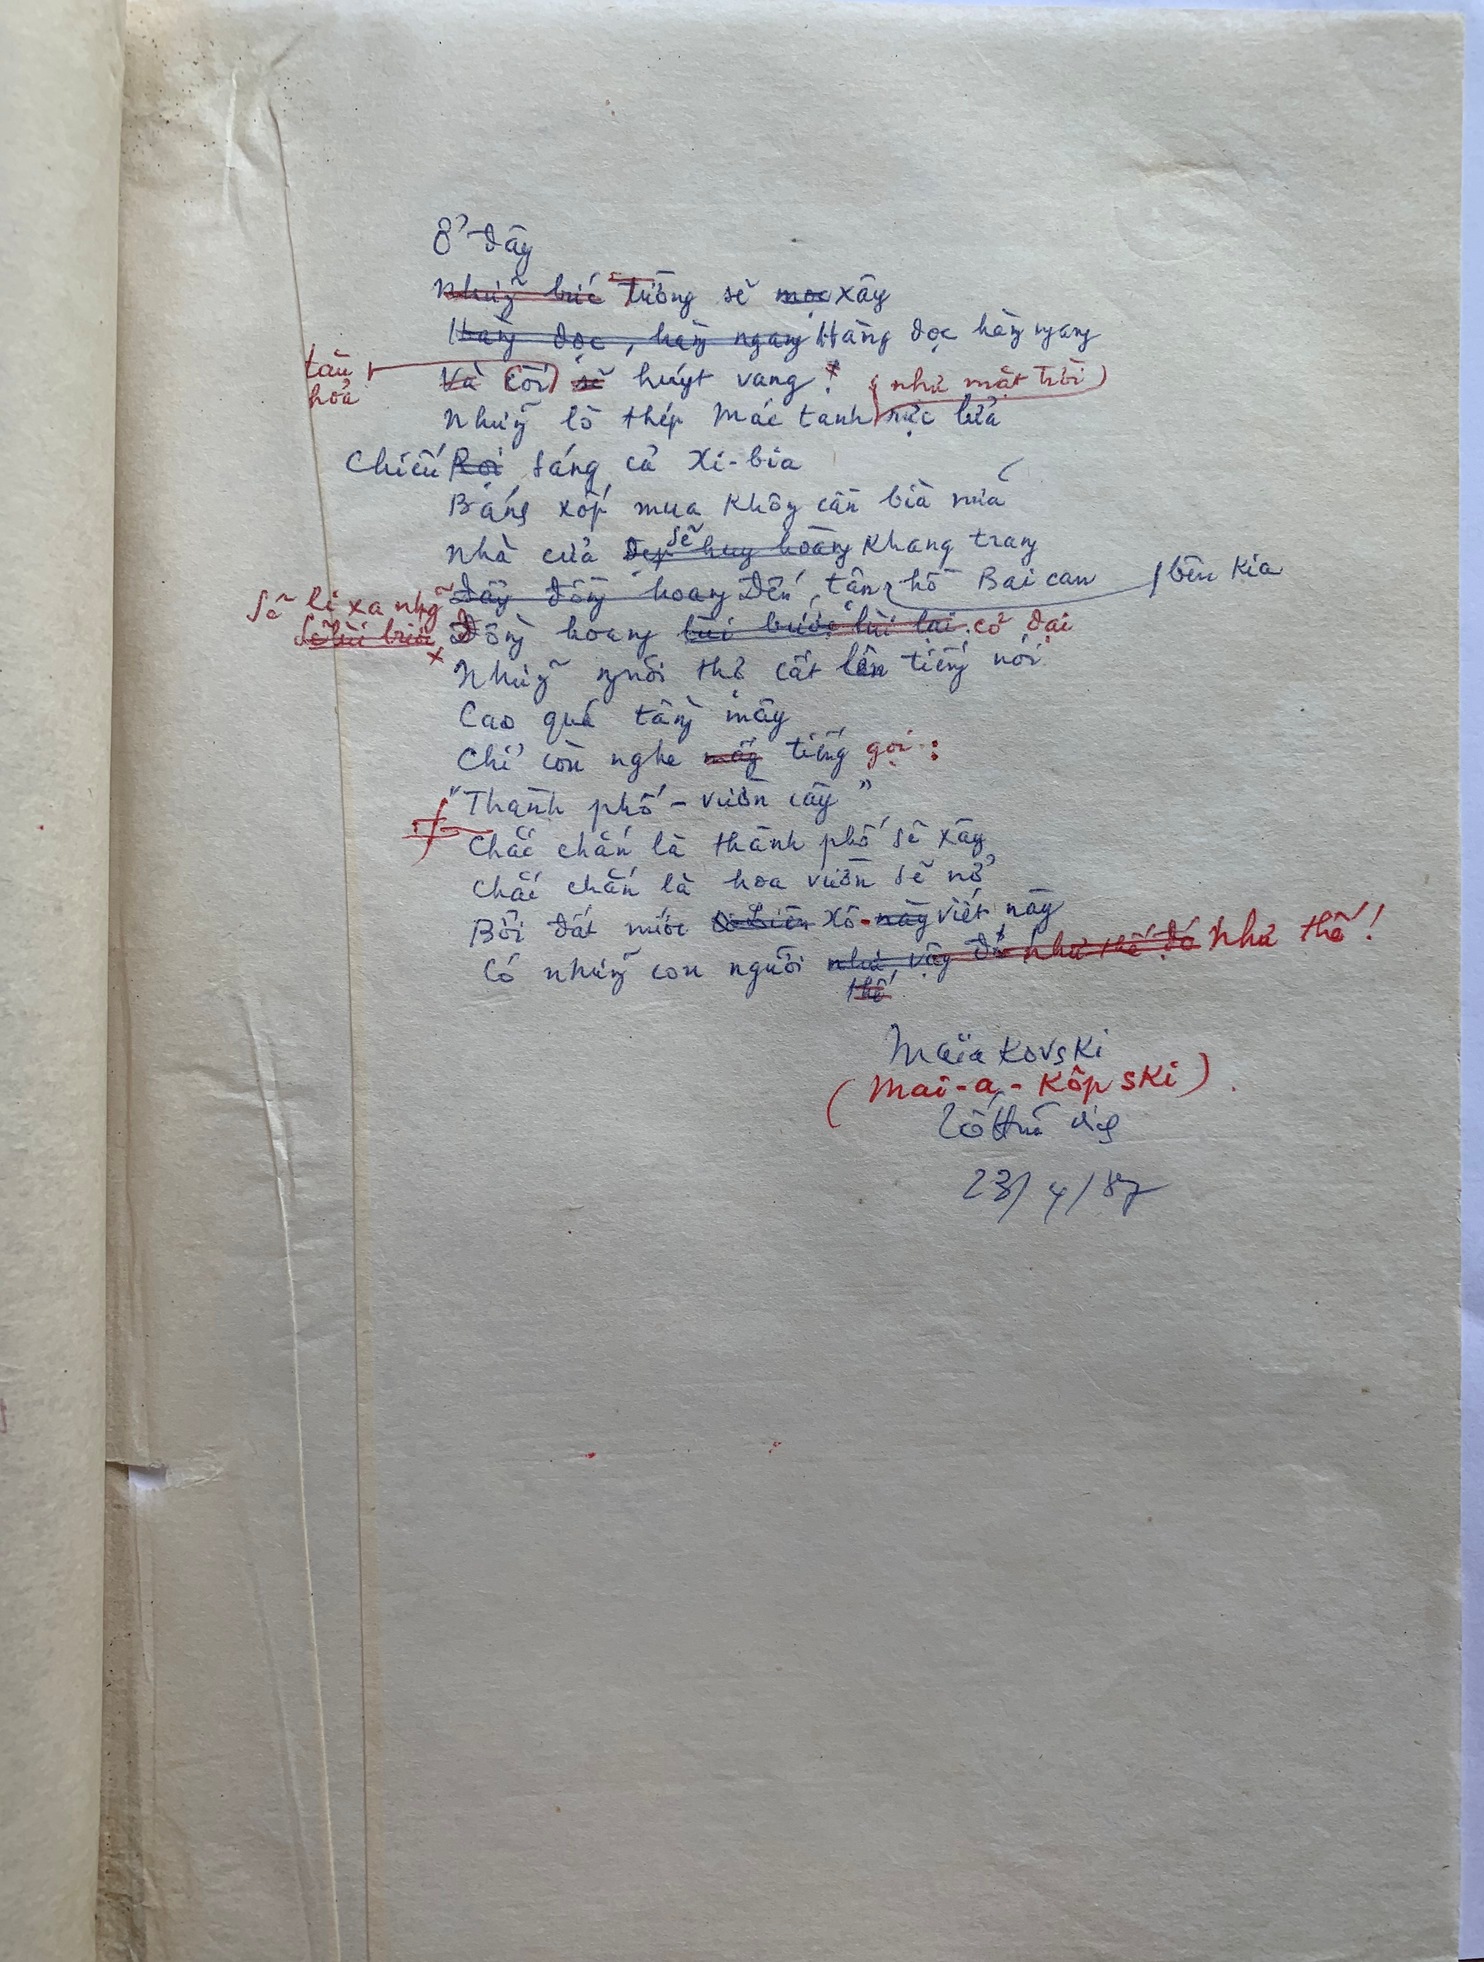 Ở đây
Những bức Tường sẽ mọc xây
Hàng dọc, hàng ngang Hàng dọc hàng ngang
tàu hỏa
Và Còi sẽ huýt vang! (như mặt trời)
Những lò thép Mác tanh rực lửa
Chiếu Rọi sáng cả Xi-bia
Bánh xốp mua không cần bìa nữa
Nhà cửa đẹp sẽ huy hoàng khang trang
Đẩy đồng hoang Đến tận hồ Bai can bên kia
Sẽ li xa những
Sẽ lùi bước Đồng hoang lùi bước lùi lại cổ đại
Những người thợ cất lên tiếng nói
Cao quá tầng mây
Chỉ còn nghe mấy tiếng gọi:
"Thành phố - vườn cây"
Chắc chắn là thành phố sẽ xây
Chắc chắn là hoa vườn sẽ nở
Bởi đất nước Liên Xô - này viết này
Có những con người như vậy đó như thế đó như thế!
thế
Maïakovski
(Mai-a-Kôpski).
Tố Hữu dịch
23/4/87